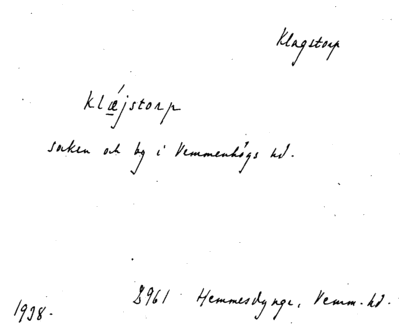 Klagstorp
klǽjstorp
socken och by i Vemmenhögs hd.
8961 Hemmesdynge, Vemm. hd.
1938.